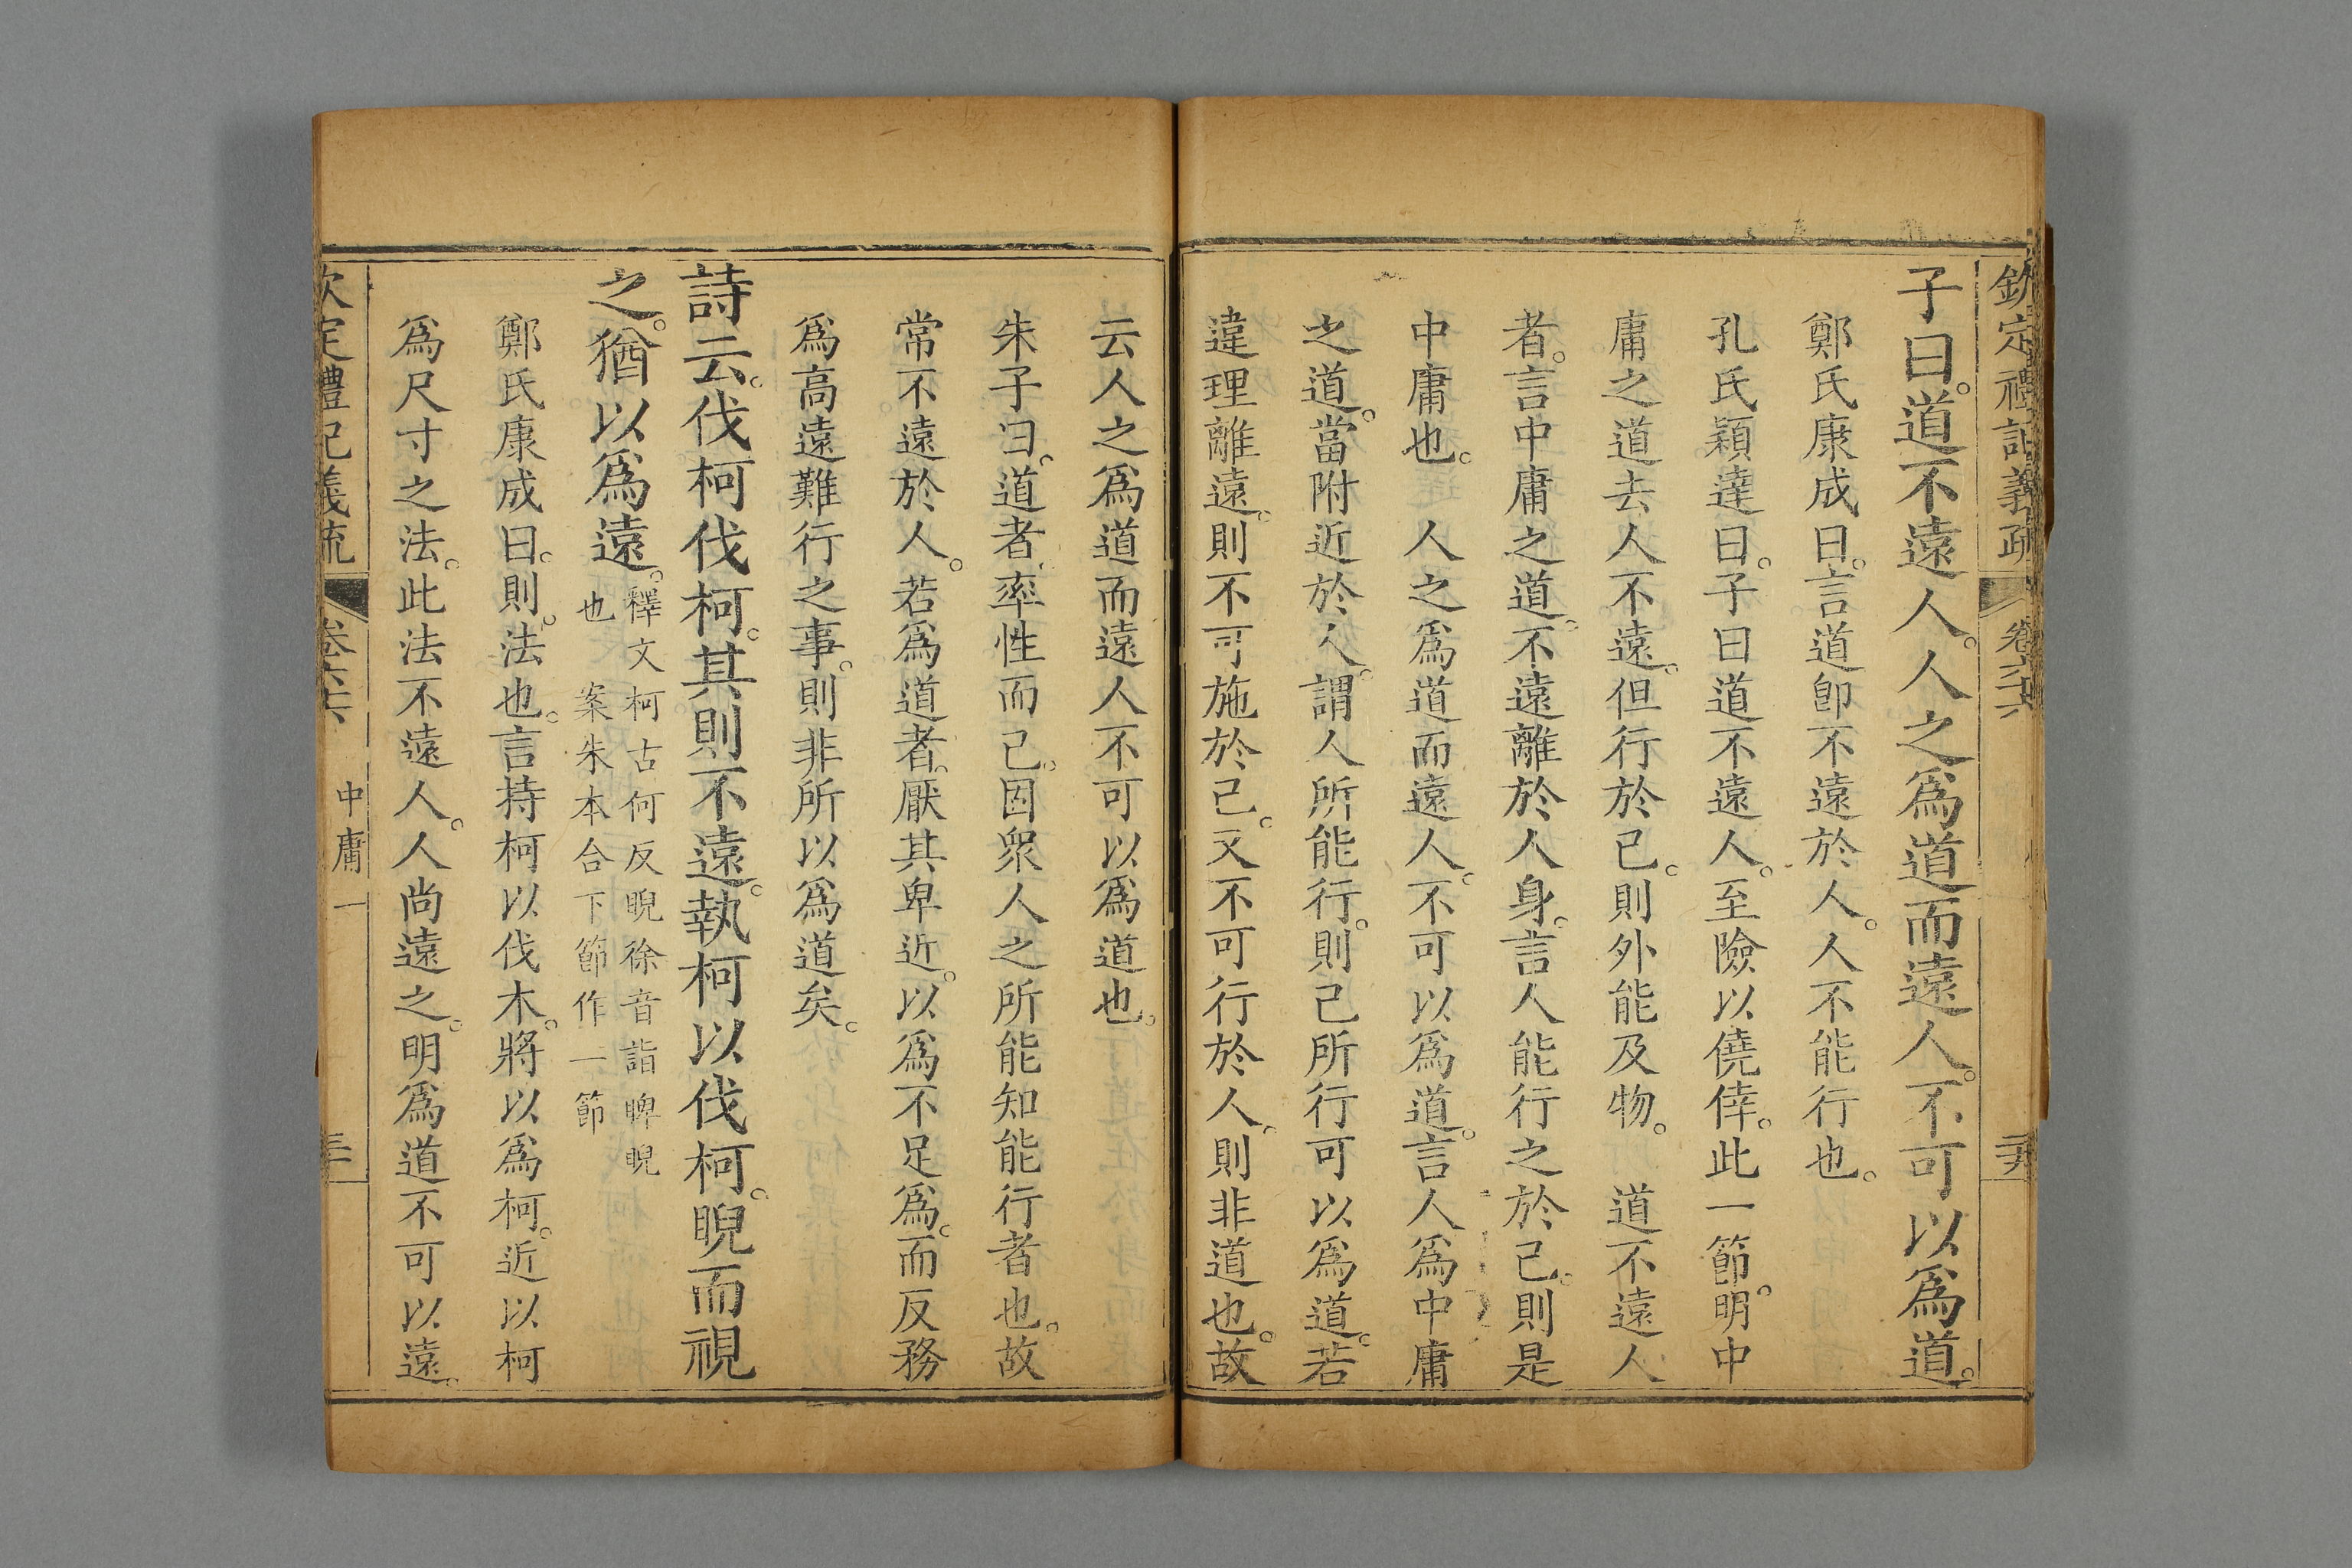 欽定禮記義疏 卷六六
子曰。道不遠人。人之爲道而遠人。不可以爲道。
鄭氏康成曰。言道卽不遠於人。人不能行也。
孔氏穎達曰。子曰道不遠人。至險以僥倖。此一節。明中
庸之道去人不遠。但行於己。則外能及物。 道不遠人
者。言中庸之道。不遠離於人身。言人能行之於己。則是
中庸也。 人之爲道而遠人。不可以爲道。言人爲中庸
之道。當附近於人。謂人所能行。則己所行可以爲道。若
違理離遠。則不可施於己。又不可行於人。則非道也。故
云人之爲道而遠人不可以爲道也。
朱子曰。道者。率性而已。因眾人之所能知能行者也。故
常不遠於人。若爲道者。厭其卑近。以爲不足爲。而反務
爲高遠難行之事。則非所以爲道矣。
詩云。伐柯伐柯。其則不遠。執柯以伐柯。睨而視
之。猶以爲遠。
釋文柯古何反睨徐音詣睥睨
也 案朱本合下節作一節
鄭氏康成曰。則。法也。言持柯以伐木。將以爲柯。近以柯
爲尺寸之法。此法不遠人。人尚遠之。明爲道不可以遠。
欽定禮記義疏 卷六六 中庸一